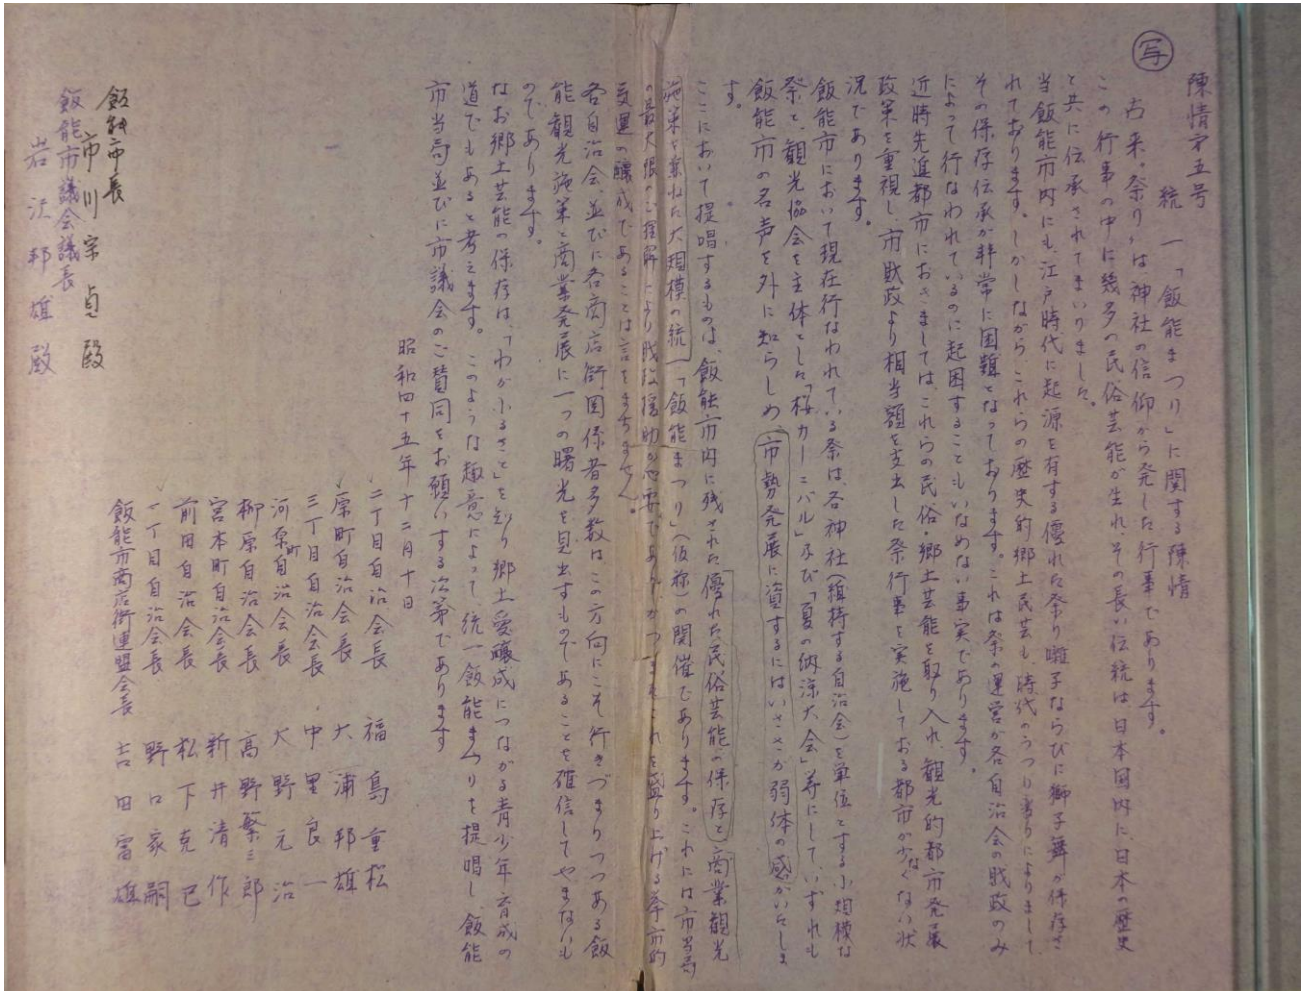 写
陳情第五号
統一「飯能まつり」に関する陳情
古来、祭りは、神社の信仰から発した行事であります。
この行事の中に幾多の民俗芸能が生れ、その長い伝統は日本国内に、日本の歴史
と共に伝承されてまいりました。
当飯能市内にも、江戸時代に起源を有する優れた祭り囃子ならびに獅子舞が保存さ
れております。しかしながら、これらの歴史的郷土民芸も、時代のうつり変りによりまして
その保存伝承が非常に困難となっております。これは祭の運営が各自治会の財政のみ
によって行なわれているのに起因することもいなめない事実であります。
近時先進都市におきましては、これらの民俗・郷土芸能を取り入れ、観光的都市発展
政策を重視し、市財政より相当額を支出した祭行事を実施しておる都市が少なくない状
況であります。
飯能市において現在行なわれている祭は、各神社(維持する自治会)を単位とする小規模な
祭と、観光協会を主体とした「桜カーニバル」及び「夏の納涼大会」等にして、いずれも
飯能市の名声を外に知らしめ、市勢発展に資するにはいささか弱体の感がいたしま
す。
ここにおいて提唱するものは、飯能市内に残された優れた民俗芸能の保存と商業観光
施策を兼ねた大規模の統一「飯能まつり」(仮称)の開催であります。これには市当局
の最大限のご理解により財政援助が必要であり、かつまたこれを盛り上げる挙市的
気運の醸成であることは言をまちません。
各自治会、並びに各商店街関係者多数は、この方向にこそ行きづまりつつある飯
能観光施策と商業発展に一つの曙光を見出すものであることを確信してやまないも
のであります。
なお郷土芸能の保存は、「わがふるさと」を知り郷土愛醸成につながる青少年育成の
道でもあると考えます。このような趣意によって、統一飯能まつりを提唱し、飯能
市当局並びに市議会のご賛同をお願いする次第であります
昭和四十五年十二月十日
二丁目自治会長 福島重松
原町自治会長 大浦邦雄
三丁目自治会長 中里良一
河原町自治会長 大野元治
柳原自治会長 高野繁三郎
宮本町自治会長 新井清作
前田自治会長 松下克己
一丁目自治会長 野口家嗣
飯能市商店街連盟会長 吉田富雄
飯能市長
市川宗貞殿
飯能市議会議長
岩沢邦雄殿